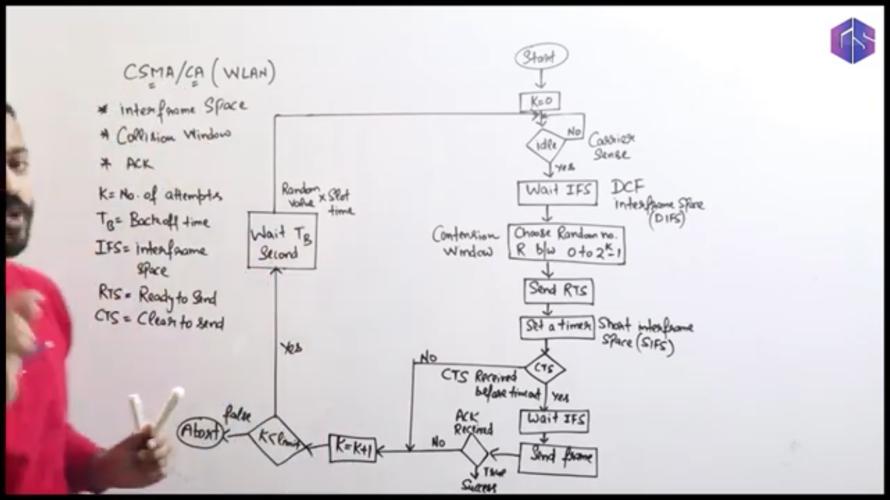 CSMA/CA (WLAN)
* interframe Space
* Collision Window
* ACK
K = No. of attempts
TB = Back off time
IFS = interframe
space
RTS = Ready to Send
CTS = Clear to send
Start
K=0
idle
No
Carrier
Sense
Yes
Wait IFS
DCF
interframe space
(DIFS)
Contension
Window
Choose Random no.
R b/w 0 to 2^K-1
Send RTS
Set a timer
Short interframe
Space (SIFS)
CTS
No
CTS Received
before timeout
Yes
Wait IFS
Send frame
ACK
Received
No
True
Success
K=K+1
K<limit
false
Abort
Yes
Wait TB
Second
Random
value × Slot
time